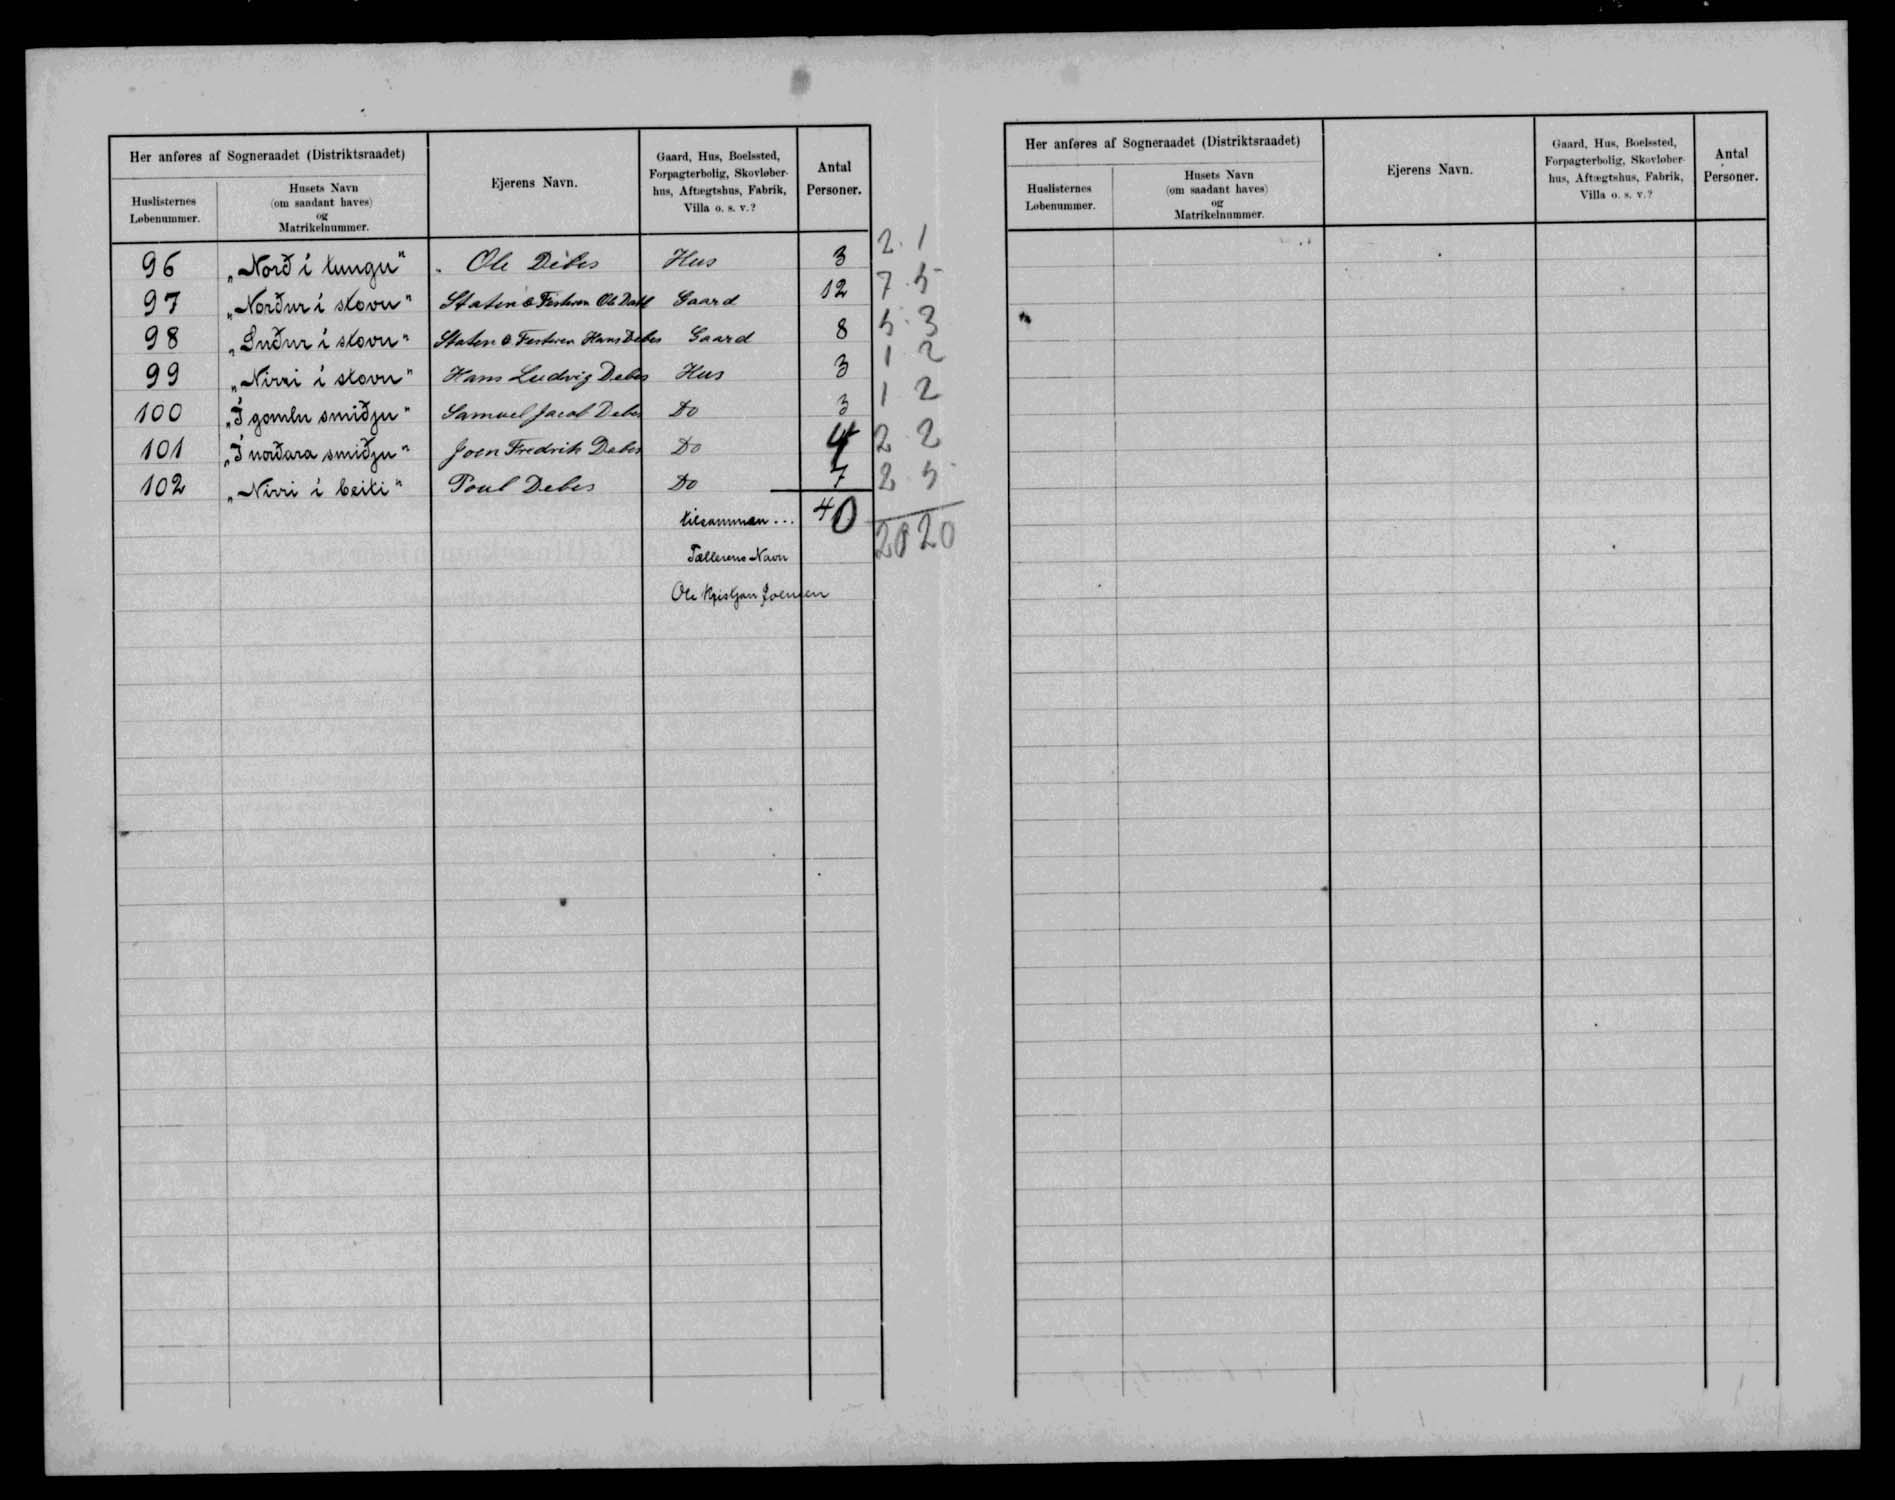 Her anføres af Sogneraadet (Distriktsraadet)
Huslisternes Løbenummer.
Husets Navn (om saadant haves) og Matrikelnummer.
Ejerens Navn.
Gaard, Hus, Boelssted, Forpagterbolig, Skovløberhus, Aftægtshus, Fabrik, Villa o. s. v.?
Antal Personer.
96 „Norð í tungu“ Ole Debes Hus 3 2.1
97 „Norður í stovu“ Staten & Festeren Ole Dahl Gaard 12 7.5
98 „Suður í stovu“ Staten & Festeren Hans Debes Gaard 8 5.3
99 „Nirri í stovu“ Hans Ludvig Debes Hus 3 1 2
100 „Í gomlu smiðju“ Samuel Jacob Debes Do 3 1 2
101 „Í norðara smiðju“ Joen Fredrik Debes Do 4 2 2
102 „Nirri í beiti“ Poul Debes Do 7 2.5
tilsammen... 40 20 20
Tællerens Navn
Ole Kristjan Joensen
Her anføres af Sogneraadet (Distriktsraadet)
Huslisternes Løbenummer.
Husets Navn (om saadant haves) og Matrikelnummer.
Ejerens Navn.
Gaard, Hus, Boelssted, Forpagterbolig, Skovløberhus, Aftægtshus, Fabrik, Villa o. s. v.?
Antal Personer.